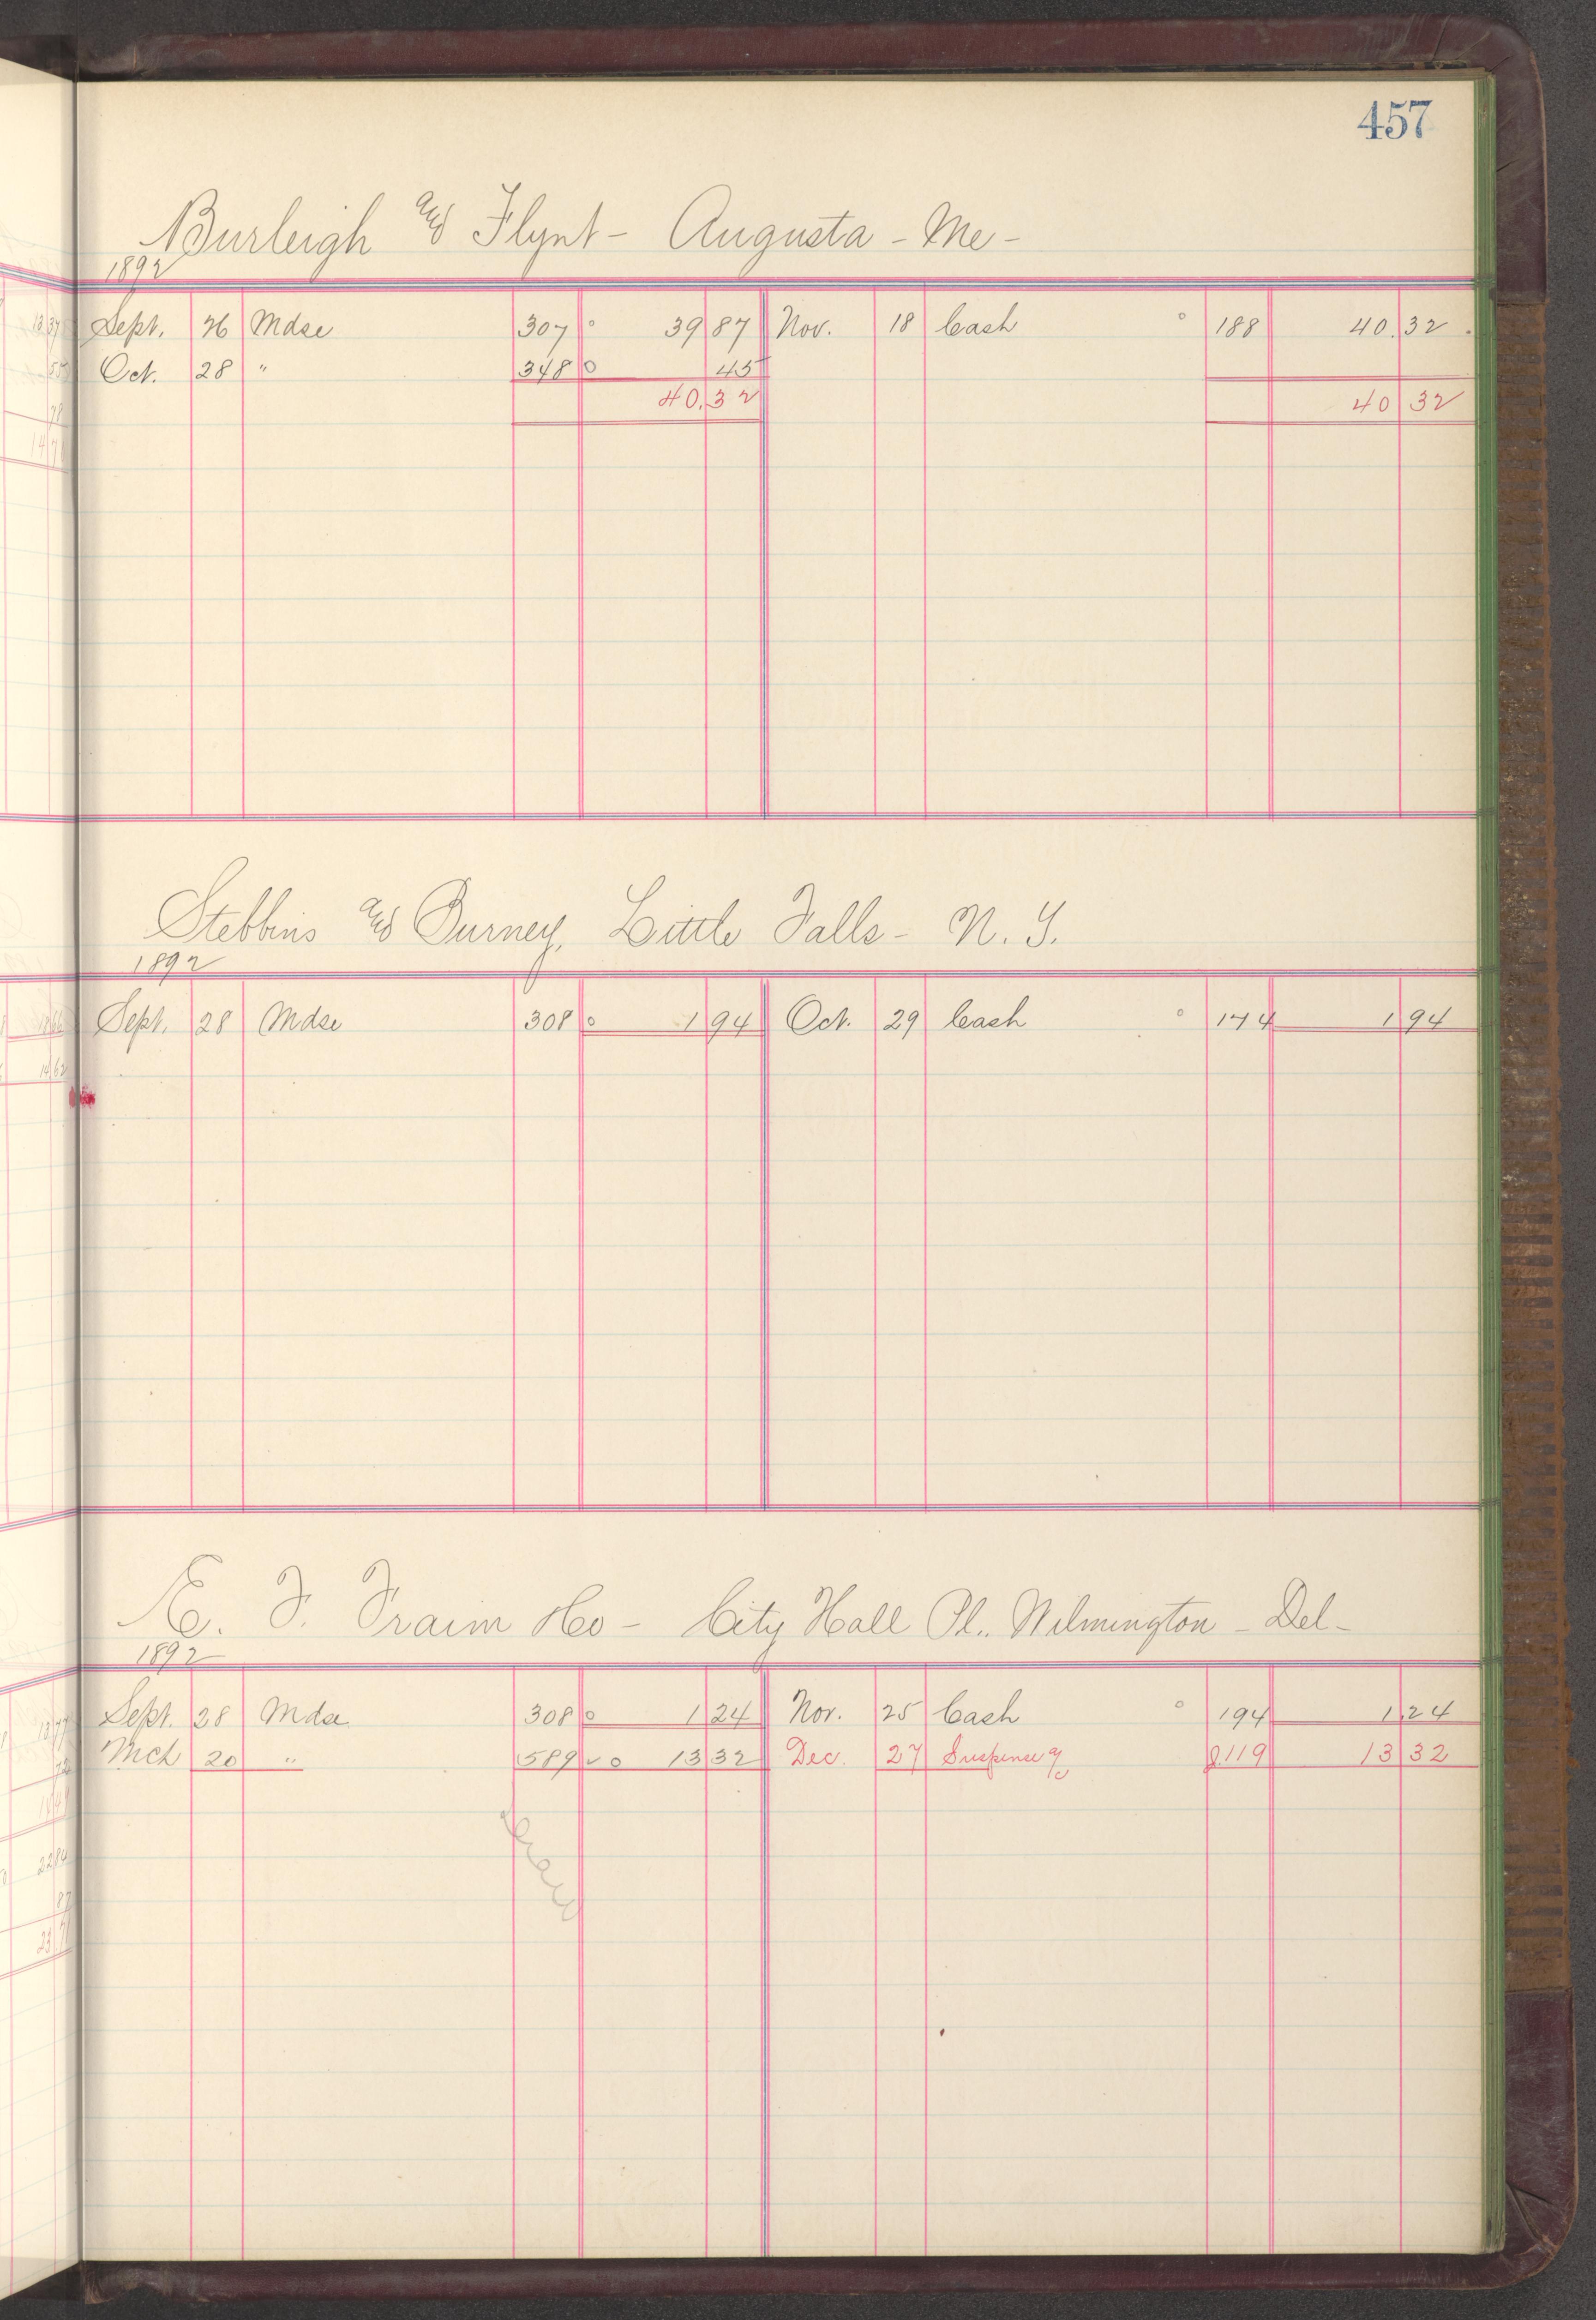 457
Burleigh and Flynt - Augusta - Me -
1892
Sept. 26 Mdse 307 39 87 Nov. 18 Cash 188 40.32
Oct. 28 " 348 45
40.32 40 32
Stebbins and Burney, Little Falls - N. Y.
1892
Sept. 28 Mdse 308 1 94 Oct. 29 Cash 174 1 94
E. F. Fraim & Co - City Hall Pl.. Wilmington - Del -
1892
Sept. 28 Mdse 308 1 24 Nov. 25 Cash 194 1.24
Mch 20 " 589 13 32 Dec. 27 Suspense a/c J.119 13 32